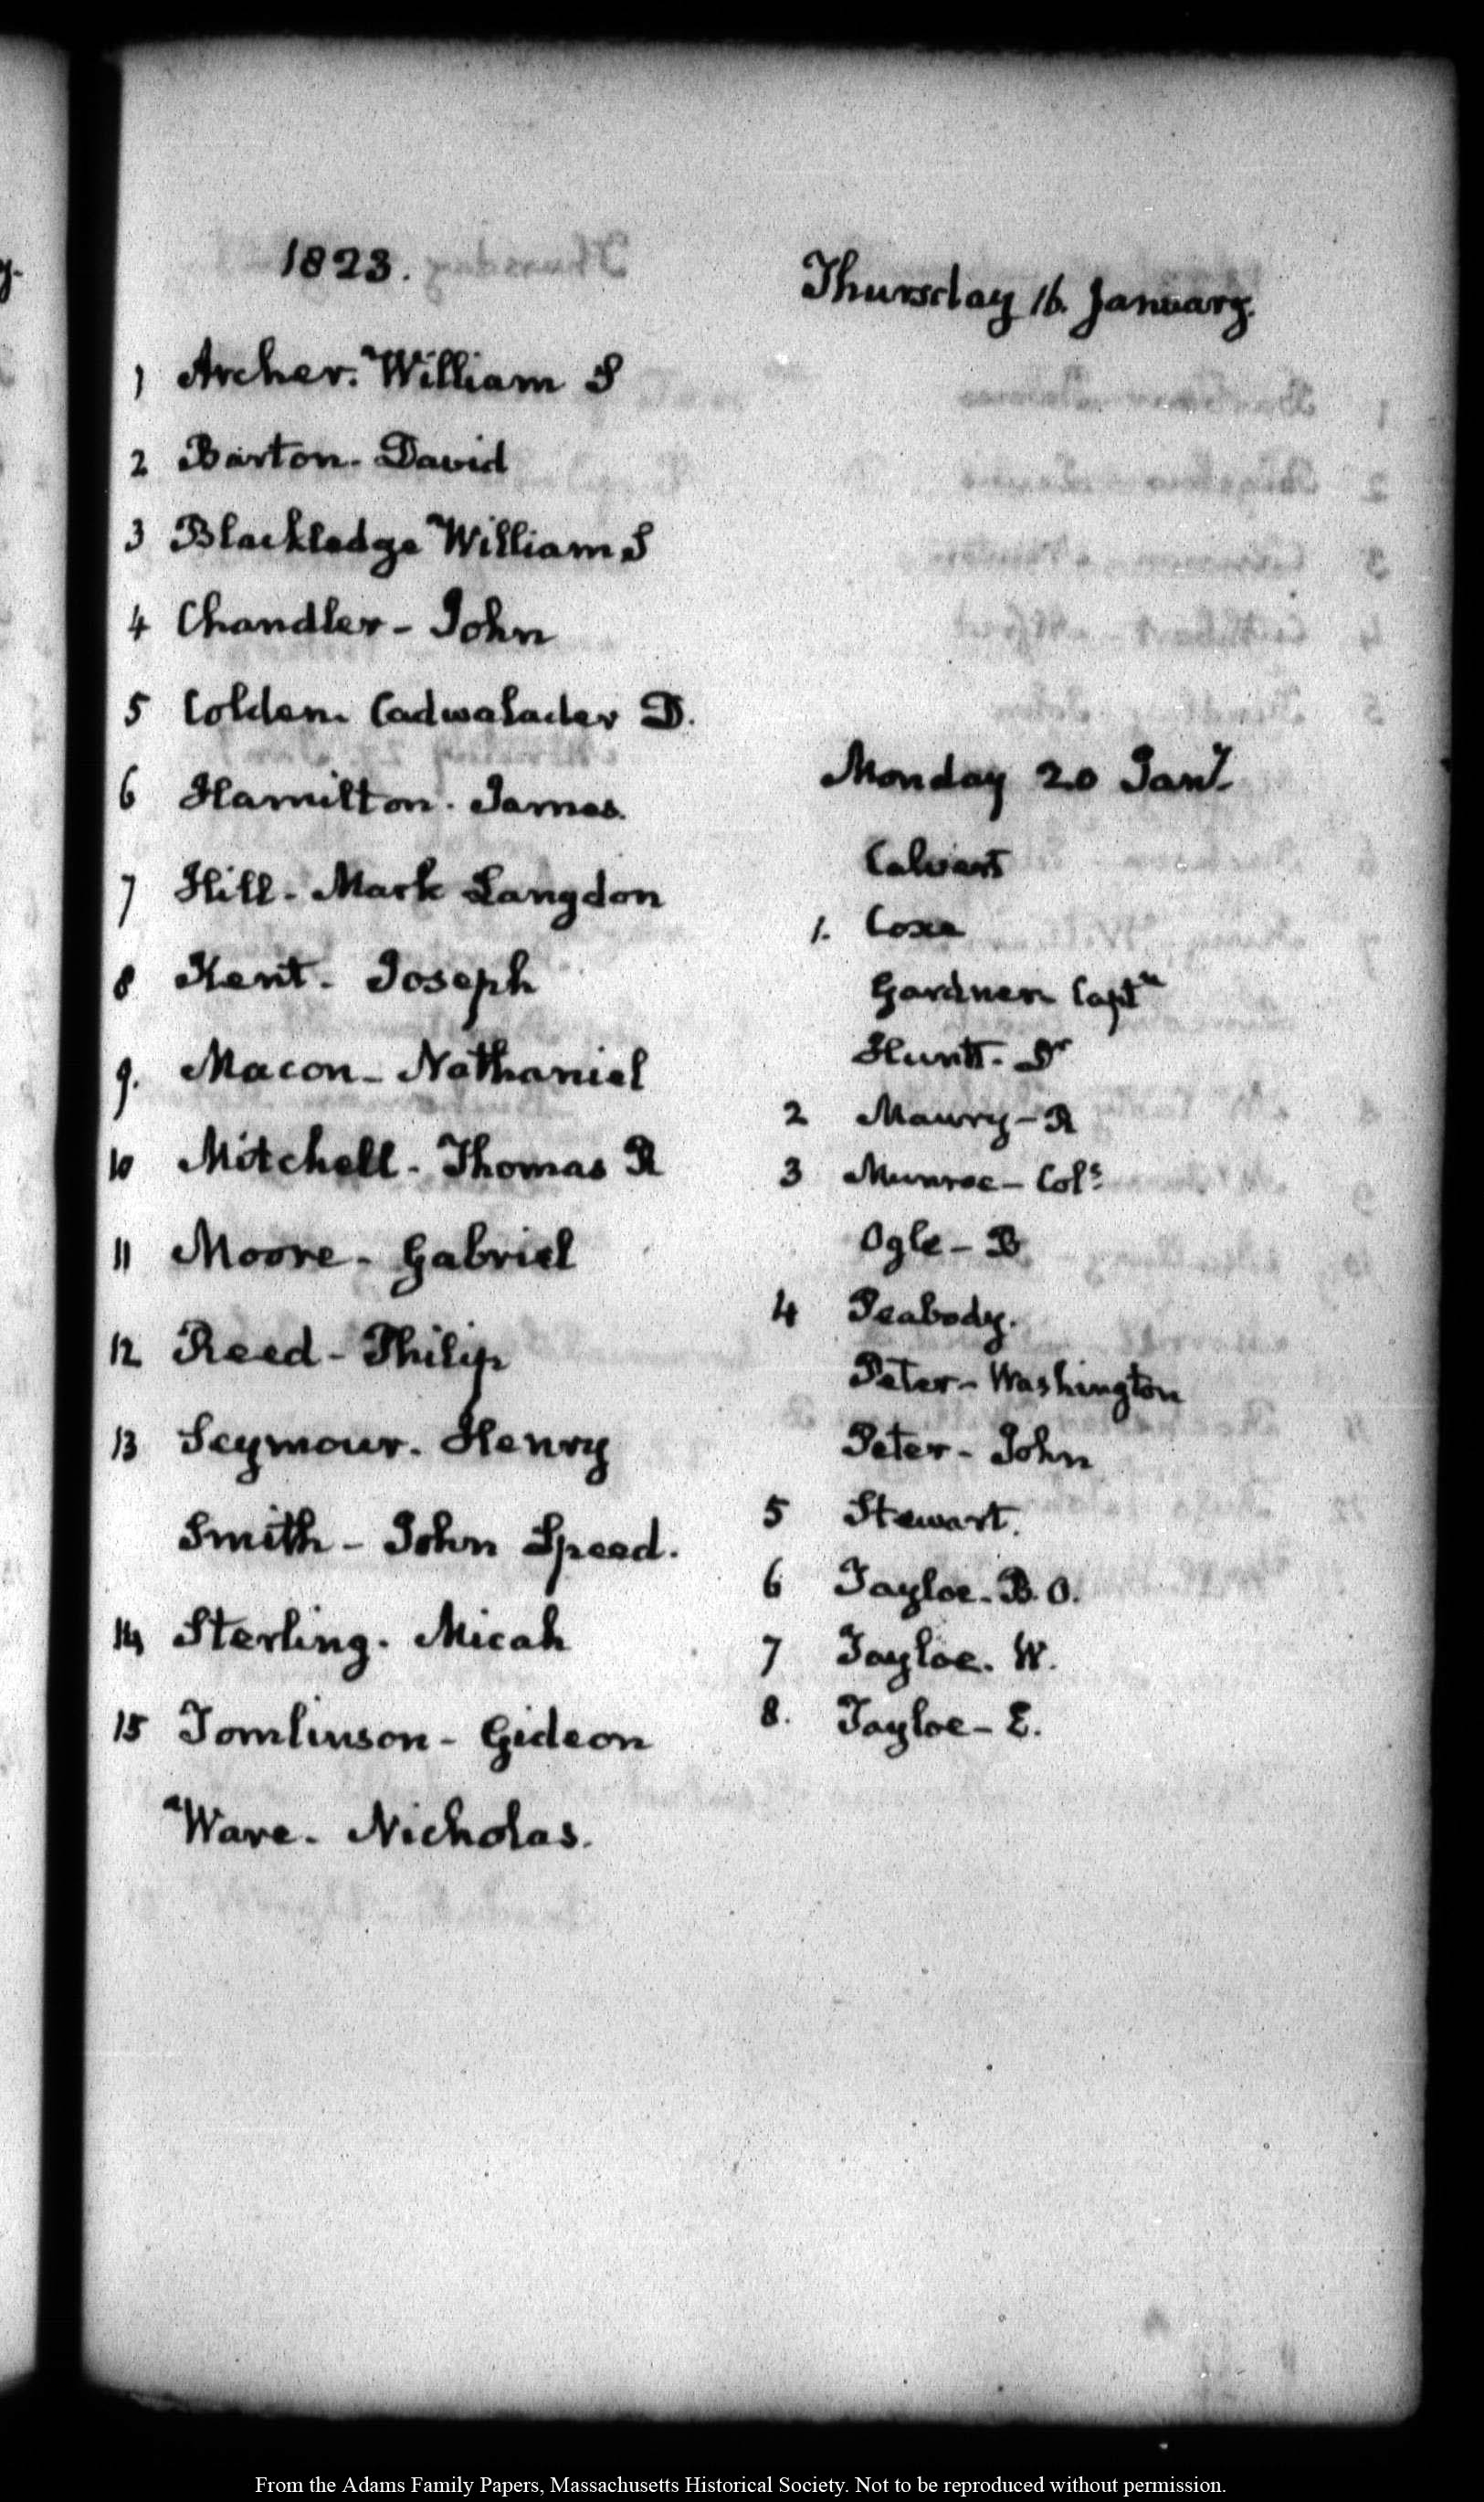 1823.
Thursday 16. January.
1 Archer. William S
2 Barton. David
3 Blackledge William S
4 Chandler - John
5 Colden. Cadwalader D.
6 Hamilton. James.
7 Hill - Mark Langdon
8 Kent - Joseph
9. Macon - Nathaniel
10 Mitchell - Thomas R
11 Moore - Gabriel
12 Reed - Philip
13 Seymour. Henry
Smith - John Speed.
14 Sterling. Micah
15 Tomlinson - Gideon
Ware. Nicholas.
Monday 20 Jany.
Calvert
1. Coxe
Gardner Captn
Huntt. Dr
2 Maury - R
3 Munroe - Cols
Ogle - B
4 Peabody.
Peter - Washington
Peter - John
5 Stewart.
6 Tayloe. B. O.
7 Tayloe. W.
8. Tayloe - E.
From the Adams Family Papers, Massachusetts Historical Society. Not to be reproduced without permission.